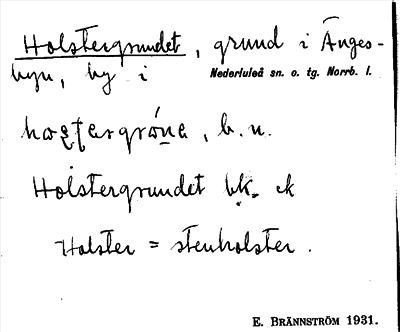 Holstergrundet, grund i Änges-
byn, by i Nederluleå sn. o. tg. Norrb. l.
b.u.
Holstergrundet bk. ek
Holster = stenholster.
E. BRÄNNSTRÖM 1931.